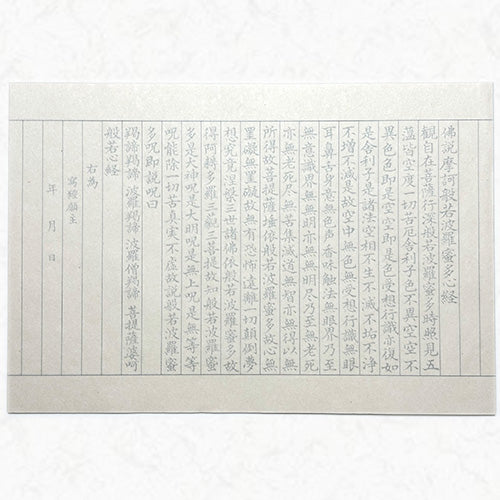 佛説摩訶般若波羅蜜多心経
観自在菩薩行深般若波羅蜜多時照見五
蘊皆空度一切苦厄舎利子色不異空空不
異色色即是空空即是色受想行識亦復如
是舎利子是諸法空相不生不滅不垢不浄
不増不減是故空中無色無受想行識無眼
耳鼻舌身意無色声香味触法無眼界乃至
無意識界無無明亦無無明尽乃至無老死
亦無老死尽無苦集滅道無智亦無得以無
所得故菩提薩埵依般若波羅蜜多故心無
罣礙無罣礙故無有恐怖遠離一切顛倒夢
想究竟涅槃三世諸佛依般若波羅蜜多故
得阿耨多羅三藐三菩提故知般若波羅蜜
多是大神呪是大明呪是無上呪是無等等
呪能除一切苦真実不虚故説般若波羅蜜
多呪即説呪曰
羯諦羯諦 波羅羯諦 波羅僧羯諦 菩提薩婆訶
般若心経
右為
寫經願主
年 月 日